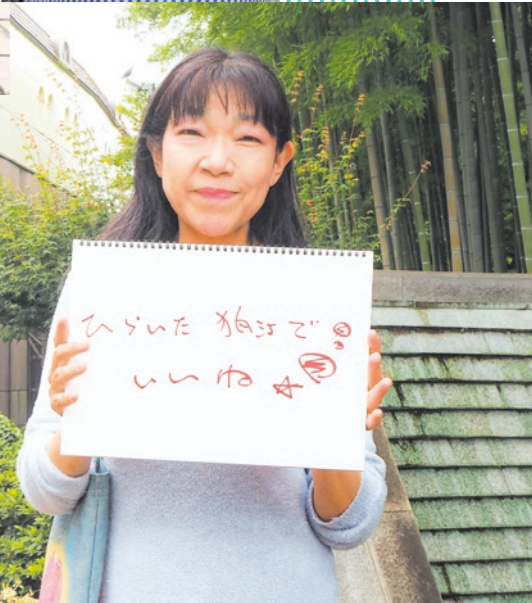 ひらいた 狛江で
いいね ☆